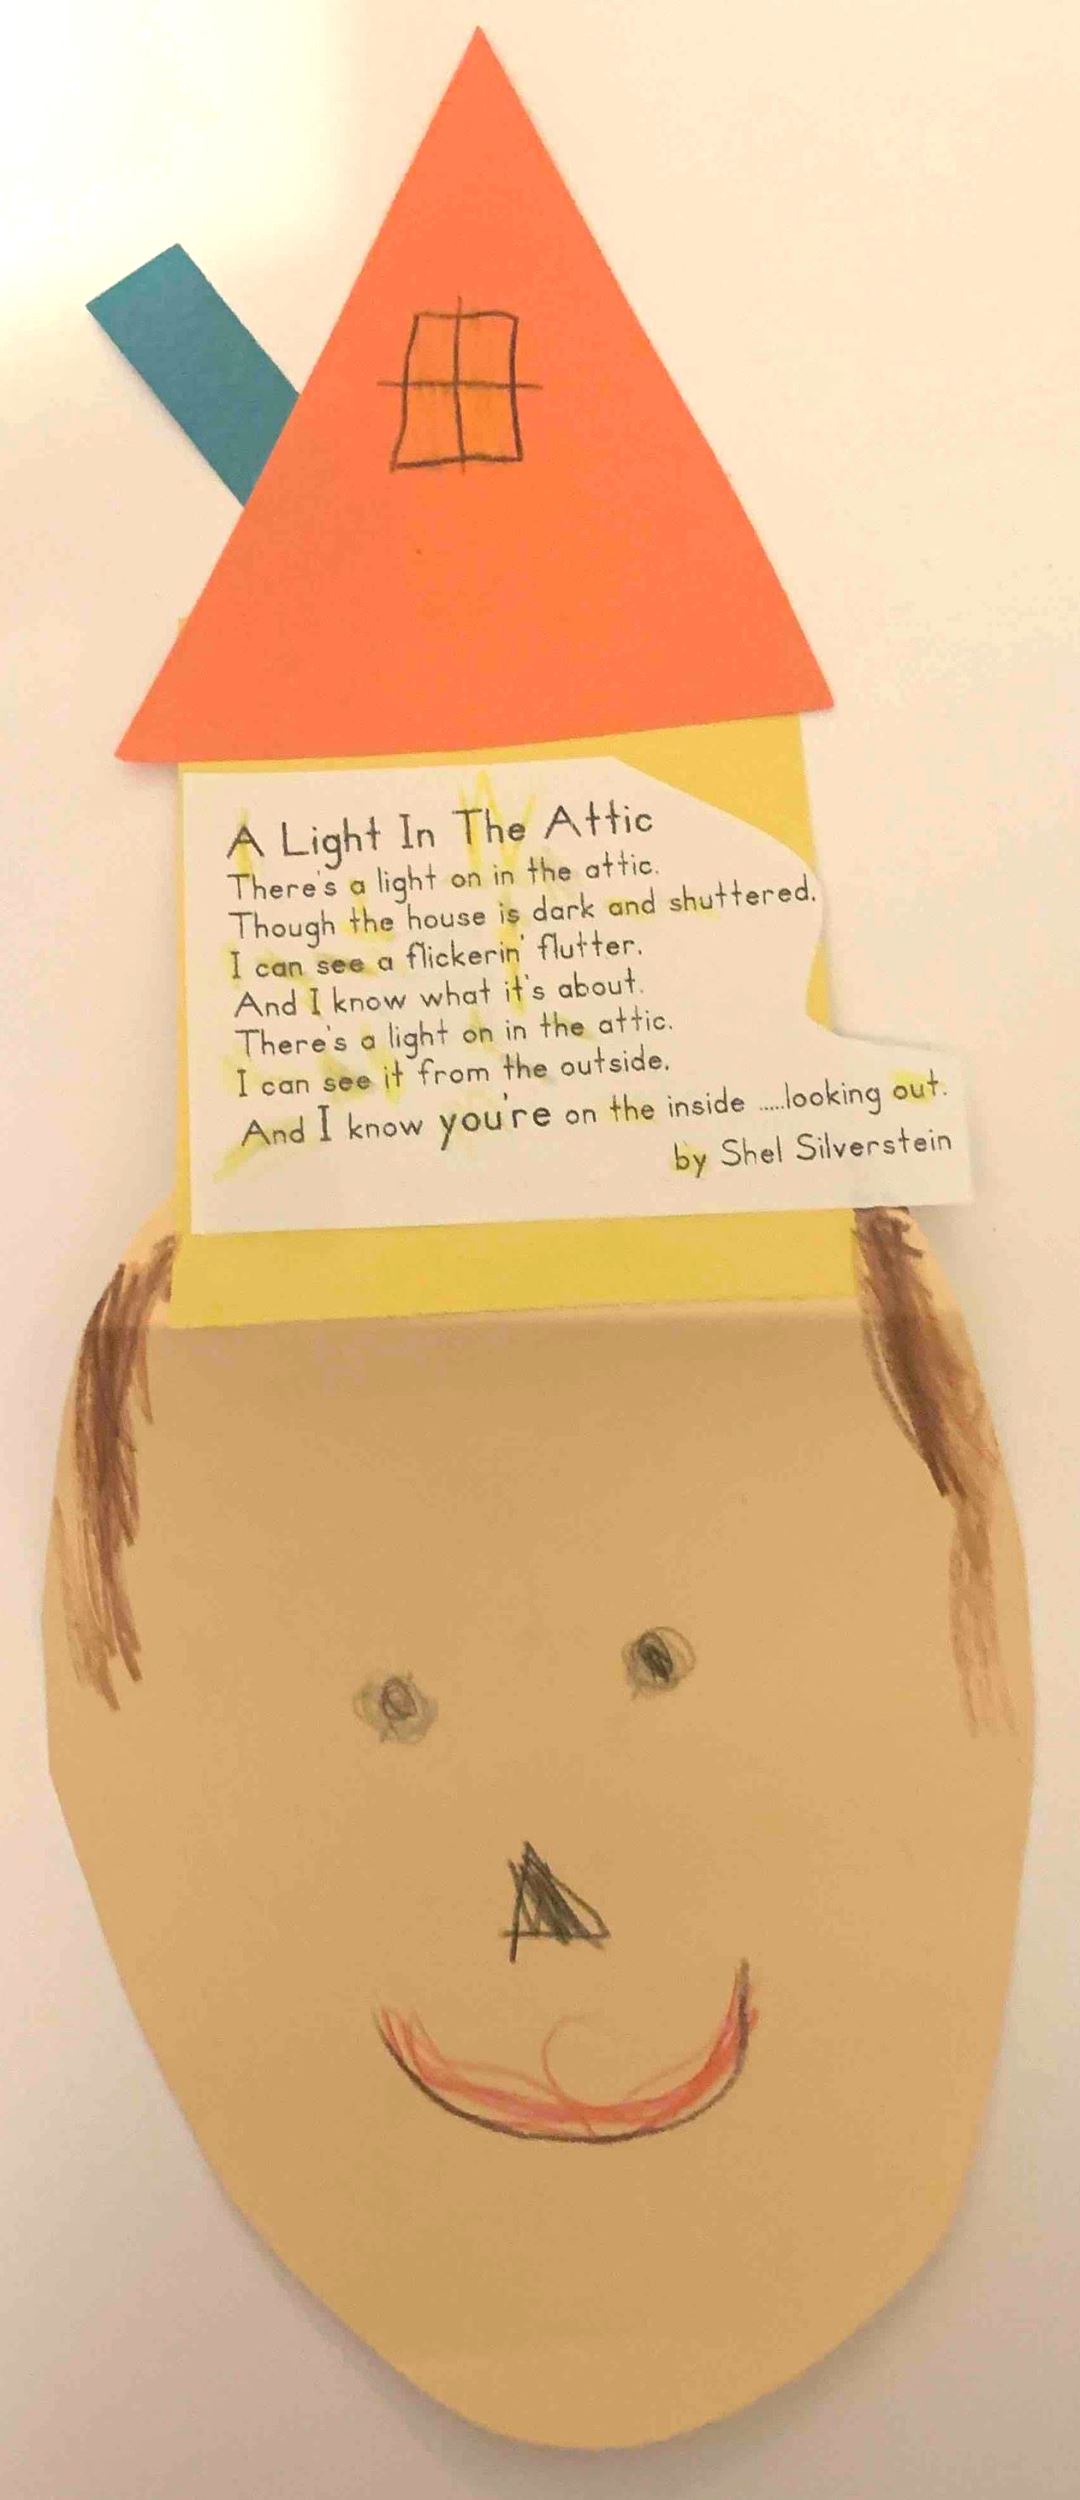 A Light In The Attic
There's a light on in the attic.
Though the house is dark and shuttered.
I can see a flickerin' flutter.
And I know what it's about.
There's a light on in the attic.
I can see it from the outside.
And I know you're on the inside .....looking out.
by Shel Silverstein